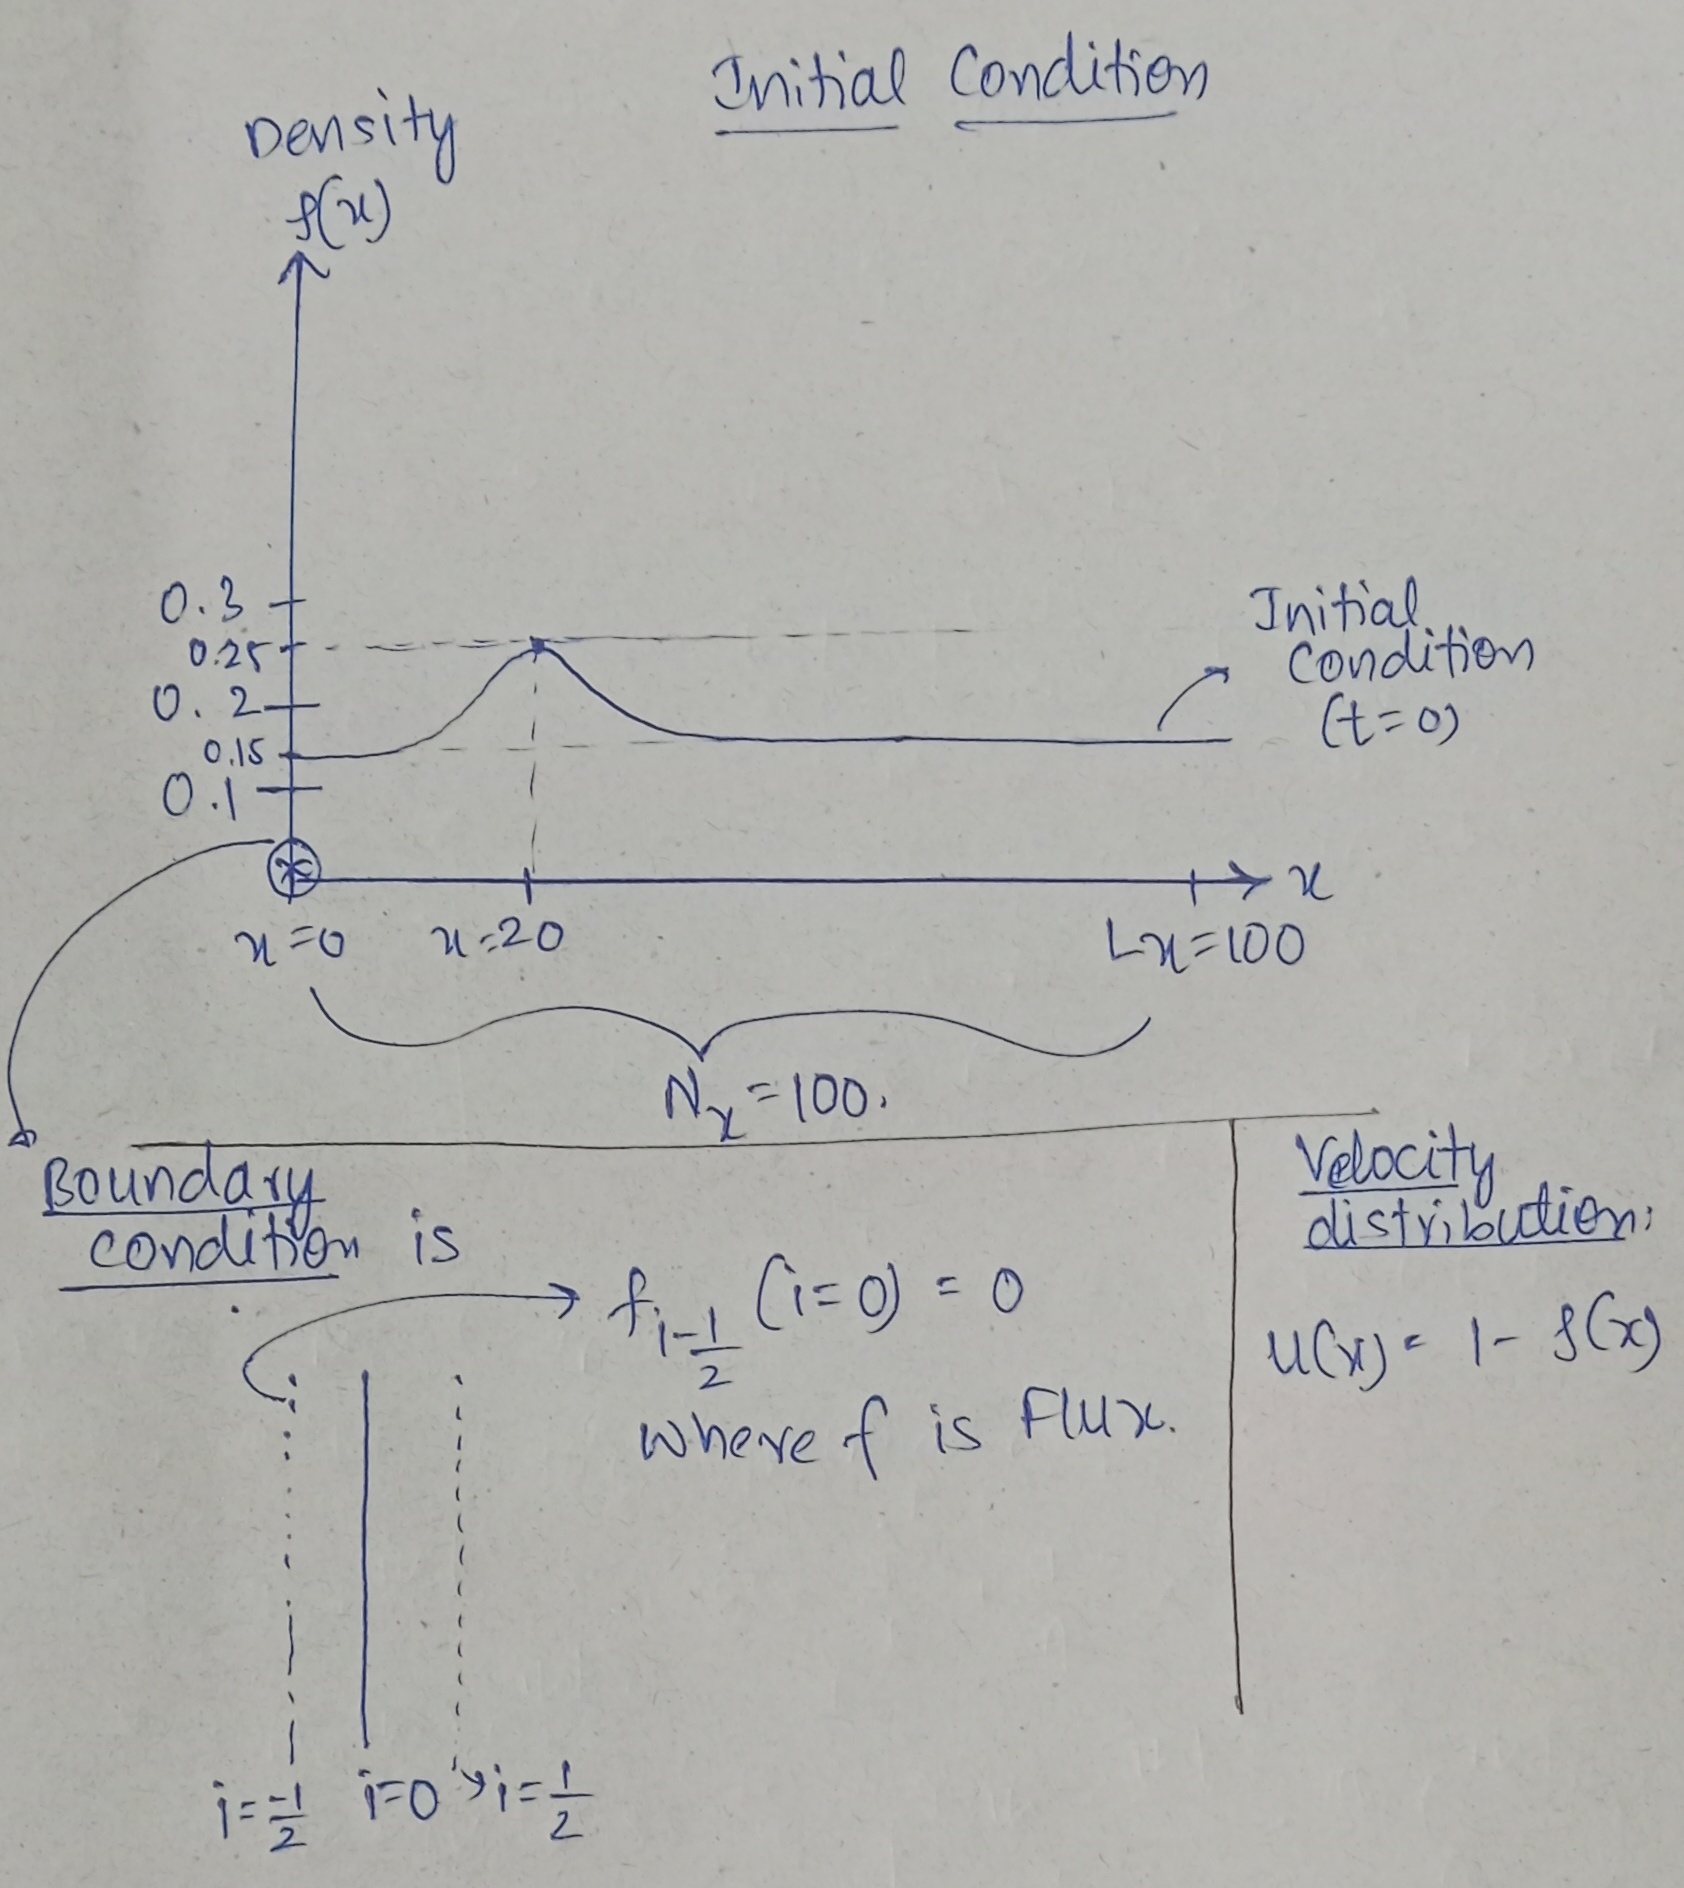 Initial Condition
Density
ρ(x)
0.3
0.25
0.2
0.15
0.1
Initial
Condition
(t=0)
x
x=0 x=20 Lx=100
Nx=100.
Boundary
condition is
f i-1/2 (i=0) = 0
where f is Flux.
i=-1/2 i=0 i=1/2
Velocity
distribution:
u(x) = 1- ρ(x)